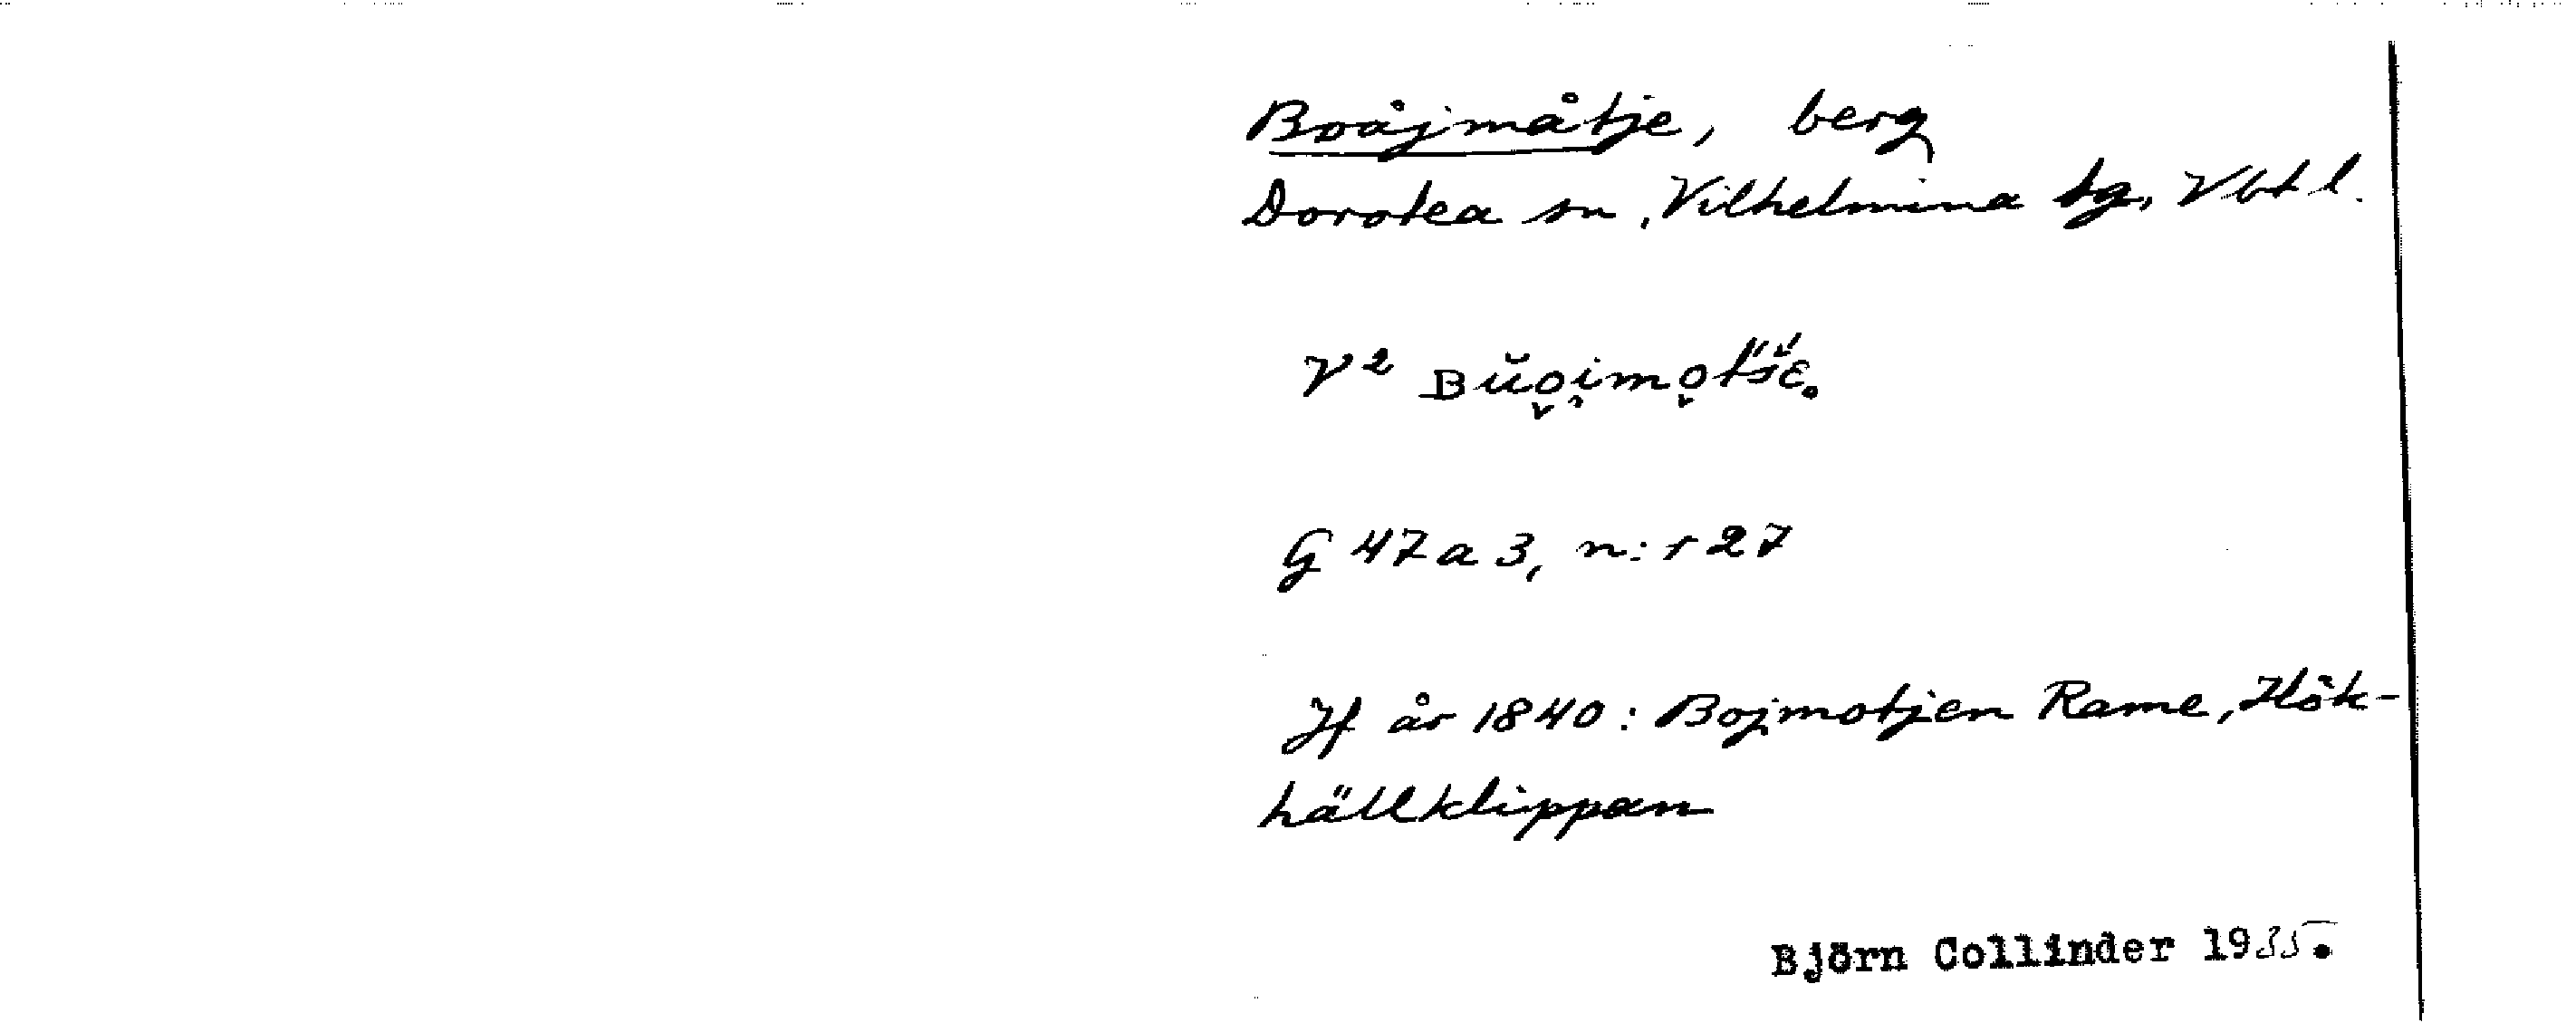 Boåjmåtje, berg
Dorotea sn, Vilhelmina tg, Vbtl.
V²
G 47 a 3, n:r 27
Jf år 1840: Bojmotjen Rame, Hök-
hällklippan
Björn Collinder 1935.